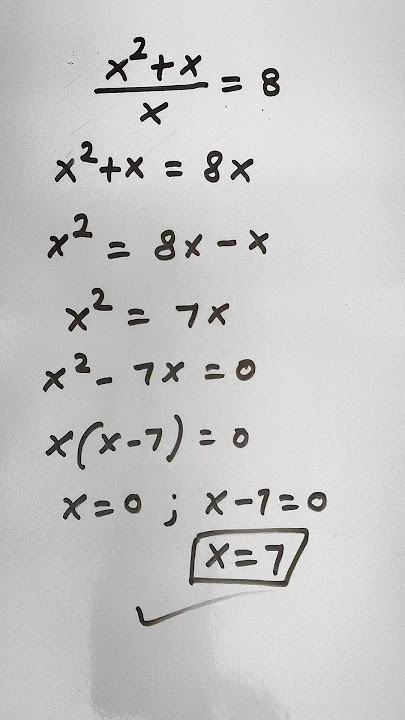 x²+x
x
= 8
x²+x = 8x
x² = 8x-x
x² = 7x
x²- 7x = 0
x(x-7) = 0
x=0 ; x-7=0
x=7